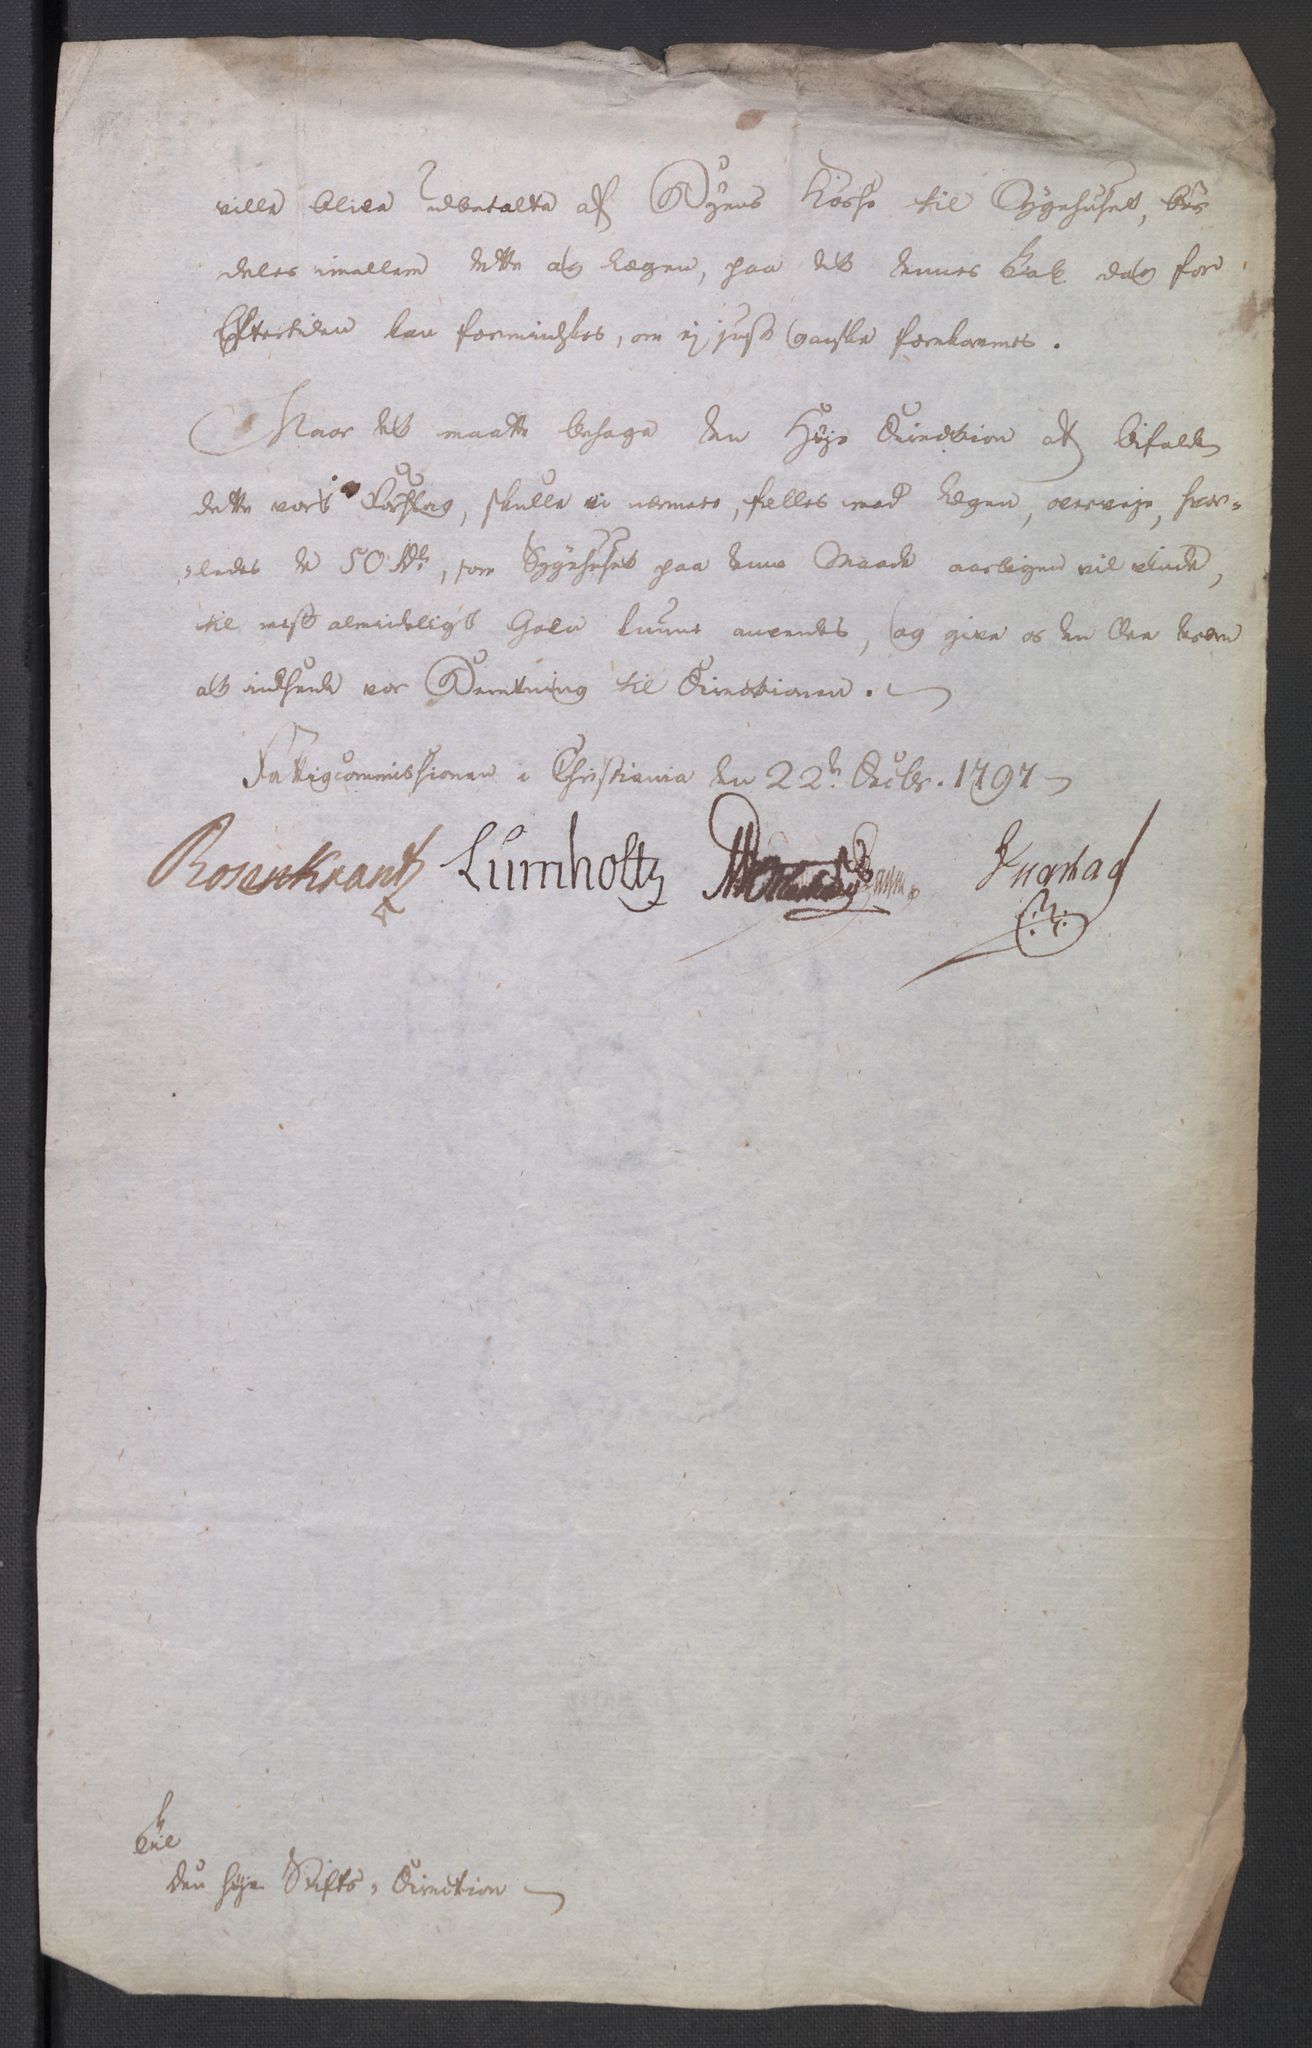 ville blive udbetalte af Byens Kasse til Sygehuset,
deles imellem dette og Lægen, paa det dennes Tab dog for
Eftertiden kan formindskes, om ej just ganske forekommes.
Naar det maatte behage den Høje Direction at bifalde
dette vort Forslag, skulle vi nærmere, fælles med Lægen, overveje, hvor-
-ledes de 50 Rdr, som Sygehuset paa denne Maade aarligen vil vinde,
til mest almindeligt Gavn kunne anvendes, og give os den Ære derom
at indsende vor Betænkning til Directionen.
Fattigcommissionen i Christiania den 22de Decbr. 1797
Rosenkrantz Lumholtz
Til
Den høje Stifts-Direction